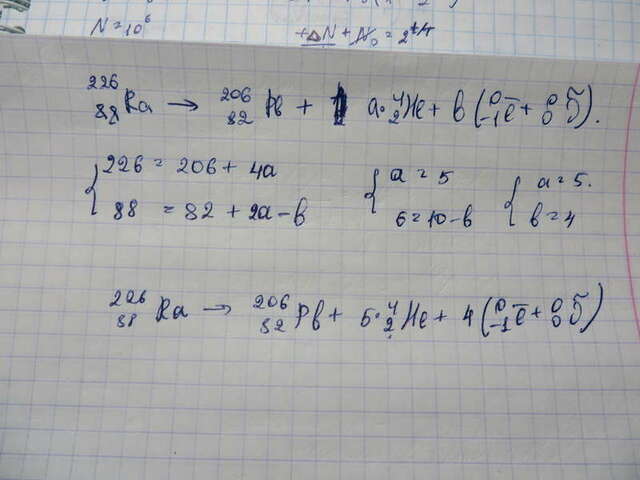 N = 10⁶
+ΔN + N₀ = 2
²²⁶₈₈Ra → ²⁰⁶₈₂Pb + a·⁴₂He + b(⁰₋₁e̅ + ⁰₀ν̃).
{ 226 = 206 + 4a { a = 5 { a = 5.
88 = 82 + 2a - b 6 = 10 - b b = 4
²²⁶₈₈Ra → ²⁰⁶₈₂Pb + 5·⁴₂He + 4(⁰₋₁e̅ + ⁰₀ν̃)